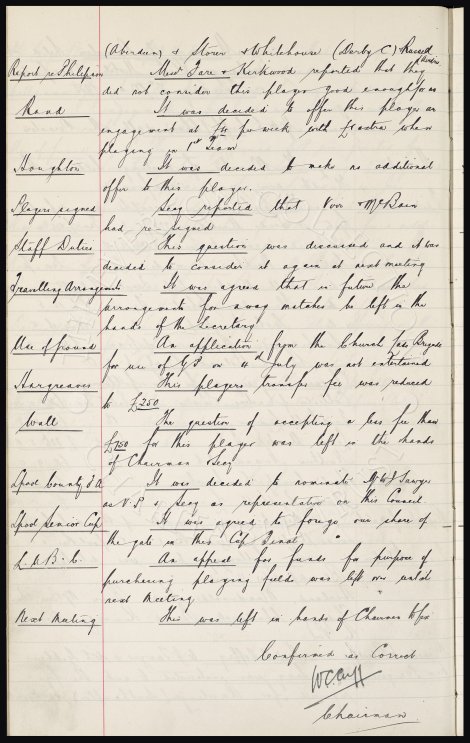 (Aberdeen) & Storer & Whitehouse (Derby C)
Report re Philipson Messrs Gare & Kirkwood reported that they
did not consider this player good enough for us
Rand It was decided to offer this player an
engagement at per week with extra when
playing in 1st Team
Houghton It was decided to make no additional
offer to this player.
Players signed Secy reported that Voor & McBain
had re-signed
Staff Duties This question was discussed and it was
decided to consider it again at next meeting
Travelling Arrangements It was agreed that in future the
arrangements for away matches be left in the
hands of the Secretary
Use of ground An application from the Church Lads Brigade
for use of G.P. on 4th July was not entertained
Hargreaves This players transfer fee was reduced
to £250
Wall The question of accepting a less fee than
£750 for this player was left in the hands
of Chairman & Secy
Lpool County F.A. It was decided to nominate Mr W J Sawyer
as V.P. & Secy as representative on this Council
Lpool Senior Cup It was agreed to forego our share of
the gate in this Cup Final
L.U.B.C. An appeal for funds for purpose of
purchasing playing fields was left over until
next meeting
Next Meeting This was left in hands of Chairman
Confirmed as Correct
W.C. Cuff
Chairman